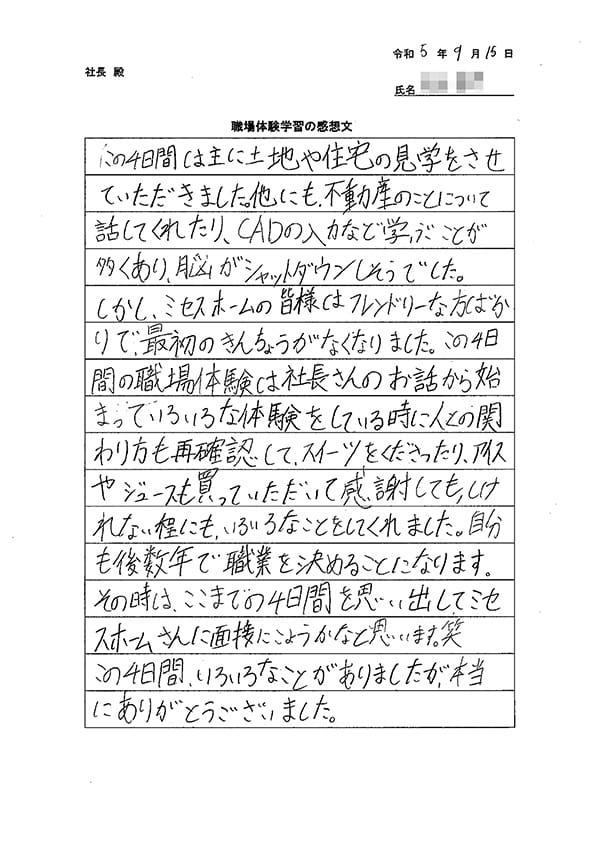 令和 5 年 9 月 15 日
社長 殿
氏名
職場体験学習の感想文
この4日間は主に土地や住宅の見学をさせ
ていただきました。他にも、不動産のことについて
話してくれたり、CADの入力など学ぶことが
多くあり、脳がシャットダウンしそうでした。
しかし、ミセスホームの皆様はフレンドリーな方ばか
りで、最初のきんちょうがなくなりました。この4日
間の職場体験は社長さんのお話から始
まっていろいろな体験をしている時に人との関
わり方も再確認して、スイーツをくださったり、アイス
やジュースも買っていただいて感謝しても,しけ
れない程にも、いろいろなことをしてくれました。自分
も後数年で職業を決めることになります。
その時は、ここまでの4日間を思い出してミセ
スホームさんに面接にこようかなと思います。笑
この4日間、いろいろなことがありましたが、本当
にありがとうございました。